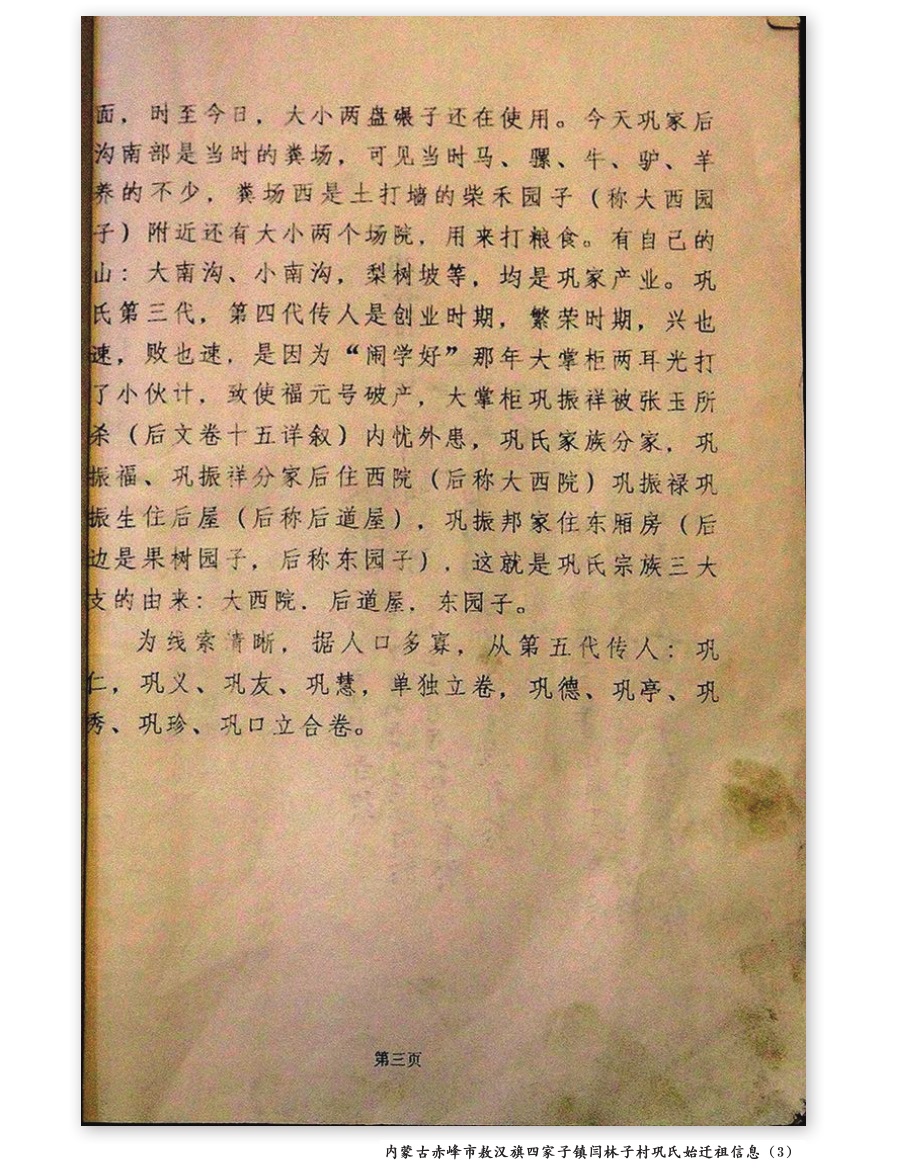 面，时至今日，大小两盘碾子还在使用。今天巩家后
沟南部是当时的粪场，可见当时马、骡、牛、驴、羊
养的不少，粪场西是土打墙的柴禾园子（称大西园
子）附近还有大小两个场院，用来打粮食。有自己的
山：大南沟、小南沟，梨树坡等，均是巩家产业。巩
氏第三代，第四代传人是创业时期，繁荣时期，兴也
速，败也速，是因为“闹学好”那年大掌柜两耳光打
了小伙计，致使福元号破产，大掌柜巩振祥被张玉所
杀（后文卷十五详叙）内忧外患，巩氏家族分家，巩
振福、巩振祥分家后住西院（后称大西院）巩振禄巩
振生住后屋（后称后道屋），巩振邦家住东厢房（后
边是果树园子，后称东园子），这就是巩氏宗族三大
支的由来：大西院．后道屋，东园子。
为线索清晰，据人口多寡，从第五代传人：巩
仁，巩义、巩友、巩慧，单独立卷，巩德、巩亭、巩
秀、巩珍、巩口立合卷。
第三页
内蒙古赤峰市敖汉旗四家子镇闫林子村巩氏始迁祖信息（3）